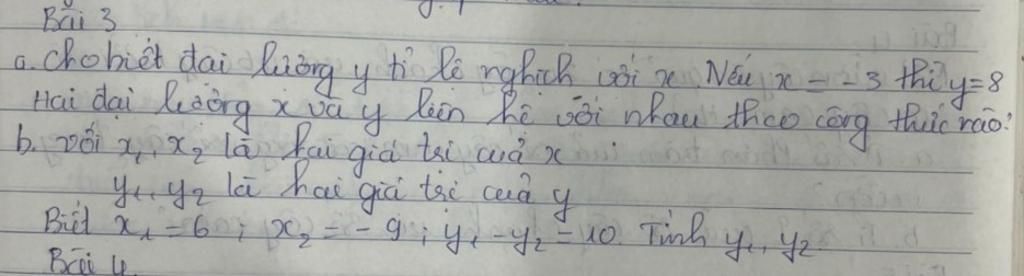 Bài 3
a. Cho biết đại lượng y tỉ lệ nghịch với x. Nếu x = -3 thì y=8
Hai đại lượng x và y liên hệ với nhau theo công thức nào?
b. với x₁, x₂ là hai giá trị của x
y₁, y₂ là hai giá trị của y
Biết x₁ = 6 ; x₂ = -9 ; y₁ - y₂ = 10. Tính y₁, y₂
Bài 4